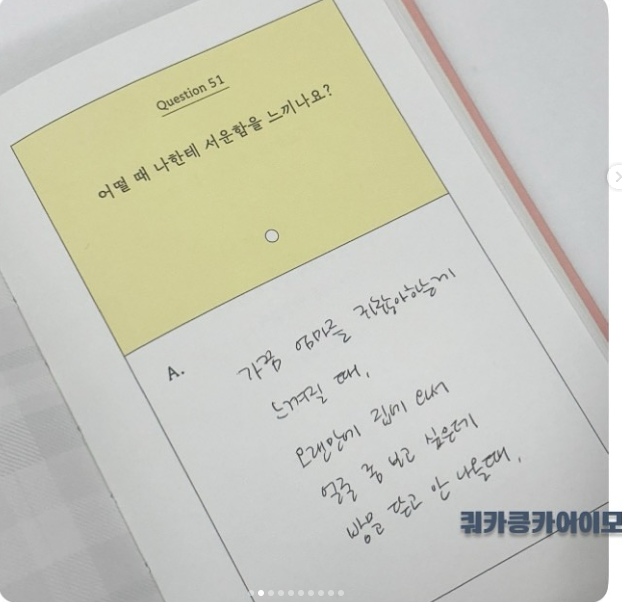 Question 51
어떨 때 나한테 서운함을 느끼나요?
A.
가끔 엄마를 귀찮아하는게
느껴질 때,
오랜만에 집에 와서
얼굴 좀 보고 싶은데
방문 닫고 안 나올때.
쿼카킁카아이모